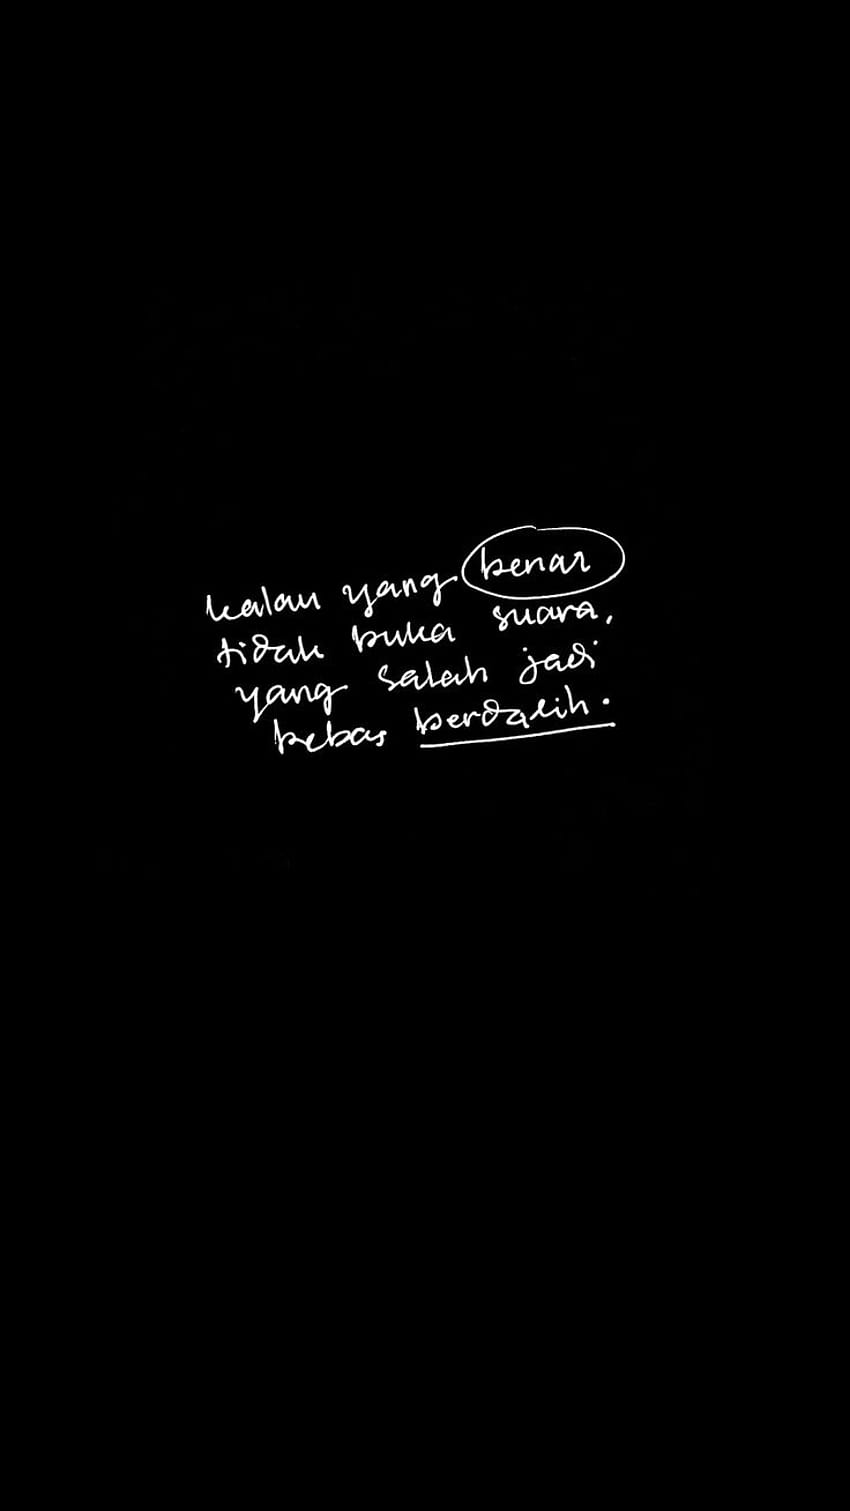 kalau yang benar
tidak buka suara,
yang salah jadi
bebas berdalih.